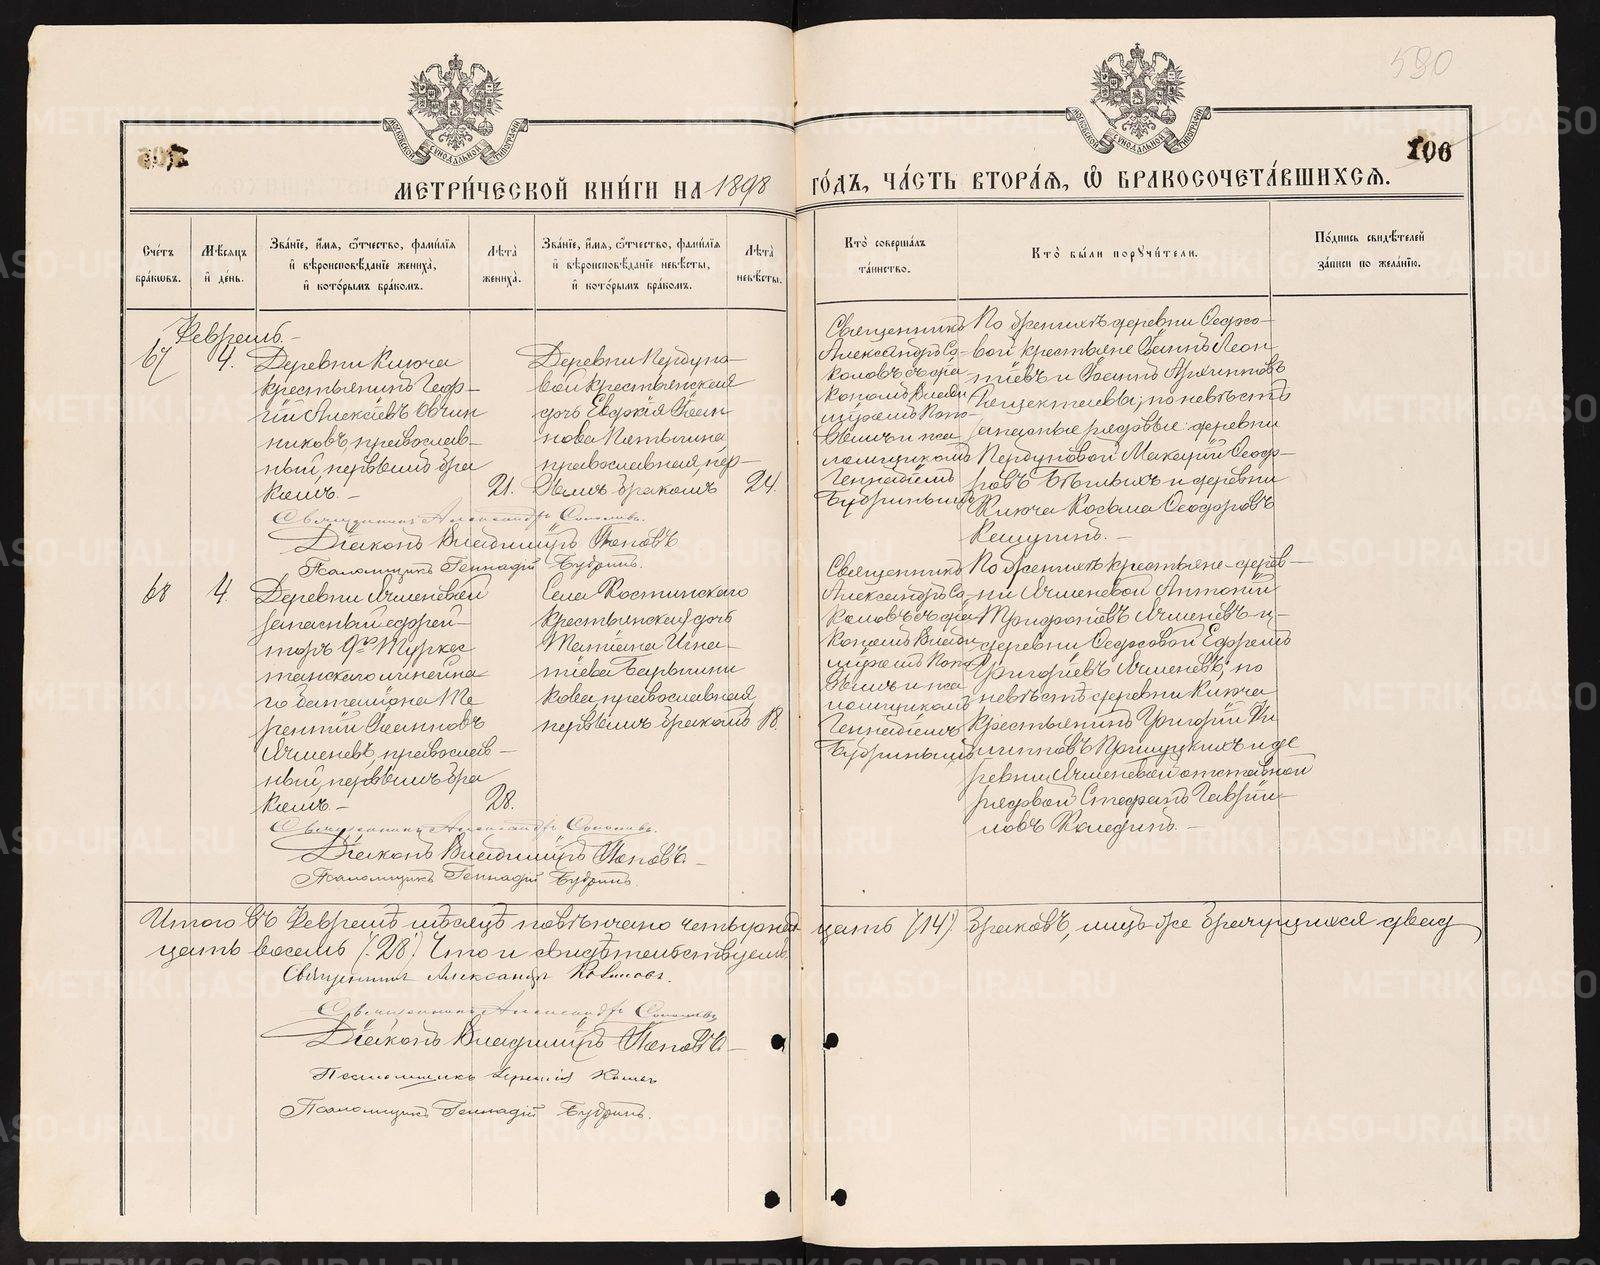 590
106
МЕТРИ́ЧЕСКОЙ КНИ́ГИ НА 1898 ГО́ДЪ, ЧА́СТЬ ВТОРА́Ѧ, Ѽ БРАКОСОЧЕТА́ВШИХСѦ.
МОСКОВСКОЙ СѴНОДАЛЬНОЙ ТИПОГРАФІИ
МОСКОВСКОЙ СѴНОДАЛЬНОЙ ТИПОГРАФІИ
Сче́тъ бра́ковъ.
Мѣ́сѧцъ и҆ де́нь.
Зва́нїе, и҆́мѧ, ѻ҆́тчество, фами́лїѧ и҆ вѣроисповѣ́данїе жениха̀, и҆ кото́рымъ бра́комъ.
Лѣ́та жениха̀.
Зва́нїе, и҆́мѧ, ѻ҆́тчество, фами́лїѧ и҆ вѣроисповѣ́данїе невѣ́сты, и҆ кото́рымъ бра́комъ.
Лѣ́та невѣ́сты.
Кто̀ соверша́лъ та́инство.
Кто̀ бы́ли порꙋчи́тели.
По́дпись свидѣ́телей за́писи по жела́нїю.
Февраль.
67
4.
Деревни Ключа
крестьянинъ Геор-
гій Алексіевъ Овчин
никовъ, православ-
ный, первымъ бра
комъ. -
21.
Деревни Пердуно-
вой крестьянская
дочь Евдокія Іоан
нова Пятыгина,
православная, пер-
вымъ бракомъ
24.
Священникъ
Александръ Со-
коловъ съ діа
кономъ Влади
міромъ Попо-
вымъ и пса
ломщикомъ
Геннадіемъ
Будринымъ
По женихѣ деревни Ѳедосо-
вой крестьяне Іоаннъ Леон
тіевъ и Іоаннъ Архипповъ
по невѣстѣ
запасные рядовые: деревни
Пердуновой Макарій Ѳеодо-
ровъ Бѣглыхъ и деревни
Ключа Косьма Ѳеодоровъ
Священникъ Александръ Соколовъ.
Діаконъ Владиміръ Поповъ
Псаломщикъ Геннадій Будринъ.
68
4.
Деревни Ячменевой
запасный ефрей-
торъ 9го Туркес
танскаго линейна
го баталіона Те
рентій Іоанновъ
Ячменевъ, православ-
ный, первымъ бра
комъ -
28.
Села Костинскаго
крестьянская дочь
Татіана Игна-
тіева Барыкини
кова, православная,
первымъ бракомъ
18.
Священникъ
Александръ Со-
коловъ съ діа
кономъ Влади
міромъ Попо
вымъ и пса
ломщикомъ
Геннадіемъ
Будринымъ
По женихѣ крестьяне-дерев-
ни Ячменевой Антоній
Трифоновъ Ячменевъ и-
деревни Ѳедосовой Ефремъ
Григоріевъ Ячменевъ; по
невѣстѣ деревни Ключа
крестьянинъ Григорій Фи
липповъ Прилуцкихъ и де
ревни Ячменевой отставной
рядовой Стефанъ Гавріи-
ловъ Каледить. -
Священникъ Александръ Соколовъ.
Діаконъ Владиміръ Поповъ. -
Псаломщикъ Геннадій Будринъ.
Итого въ Февралѣ мѣсяцѣ повѣнчано четырнад цать (14) браковъ, лицъ же брачущихся двад
цать восемь (28). Что и свидѣтельствуемъ.
Священникъ Александръ
Священникъ Александръ Соколовъ
Діаконъ Владиміръ Поповъ. -
Псаломщикъ
Псаломщикъ Геннадій Будринъ.
METRIKI.GASO-URAL.RU